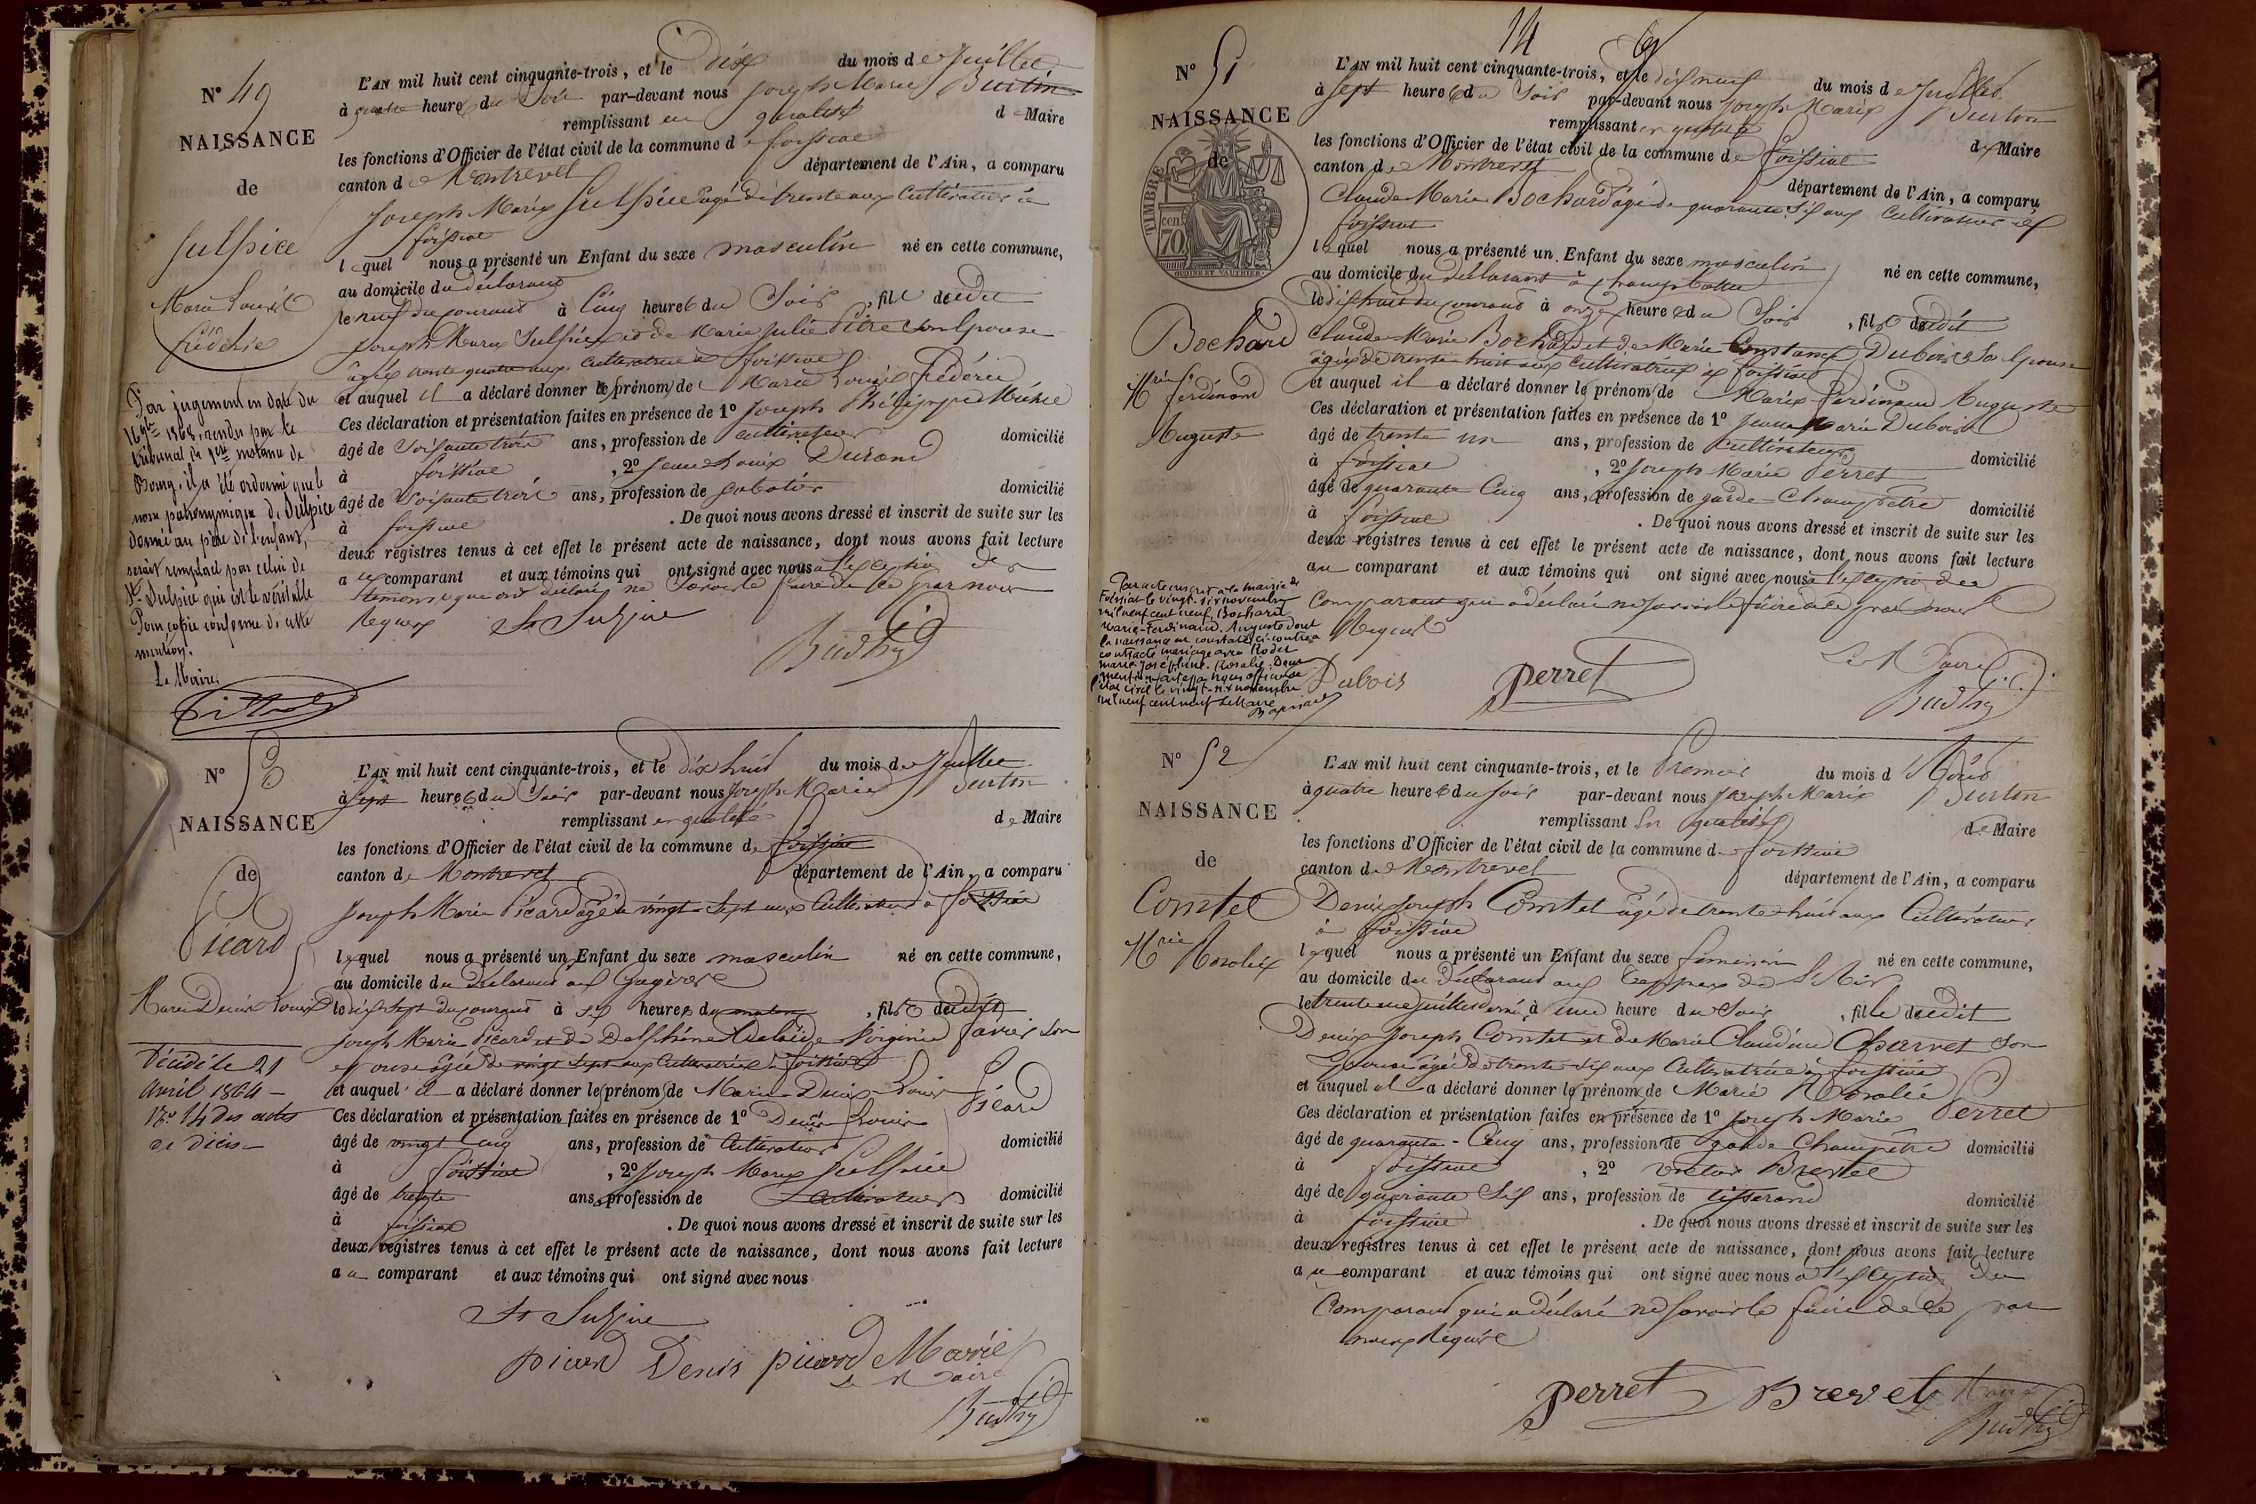 N° 49
NAISSANCE
de
Sulpice
Marie Louis
Frédéric
Par jugement en date du
16 1868, rendu par le
tribunal de 1ère instance de
Bourg, il a été ordonné que le
nom patronymique de Sulpice
donné au père de l'enfant,
serait remplacé par celui de
St Sulpice qui est le véritable
Pour copie conforme de cette
mention.
Le Maire
L'AN mil huit cent cinquante-trois, et le dix du mois de Juillet
à quatre heures du Soir par-devant nous Joseph Marie Burtin
remplissant en qualité de Maire
les fonctions d'Officier de l'état civil de la commune de foissiat
canton de Montrevel département de l'Ain, a comparu
Joseph Marie Sulpice agé de trente ans Cultivateur à
foissiat
lequel nous a présenté un Enfant du sexe masculin né en cette commune,
au domicile du déclarant
le neuf du courant à Cinq heures du Soir, fils dudit
Joseph Marie Sulpice et de Marie Julie Pitre Son Epouse
âgée trente quatre ans cultivatrice à foissiat
et auquel il a déclaré donner le prénom de Marie Louis Frédéric
Ces déclaration et présentation faites en présence de 1° Joseph Philippe
âgé de Soixante trois ans, profession de cultivateur domicilié
à foissiat, 2° Jean Louis Durand
âgé de Soixante trois ans, profession de sabotier domicilié
à foissiat. De quoi nous avons dressé et inscrit de suite sur les
deux registres tenus à cet effet le présent acte de naissance, dont nous avons fait lecture
au comparant et aux témoins qui ont signé avec nous à l'exception des
témoins que ont déclaré ne Savoir le faire de ce par nous
Requis St Sulpice
N° 50
NAISSANCE
de
Picard
Marie Denis Louis
Décédé le 21
avril 1864
N° 14 des actes
de décès
L'AN mil huit cent cinquante-trois, et le dix huit du mois de Juillet
à Sept heures du Soir par-devant nous Joseph Marie Burtin
remplissant en qualité de Maire
les fonctions d'Officier de l'état civil de la commune de foissiat
canton de Montrevel département de l'Ain, a comparu
Joseph Marie Picard âgé de vingt Sept ans Cultivateur à foissiat
lequel nous a présenté un Enfant du sexe masculin né en cette commune,
au domicile du déclarant
le dix Sept du courant à six heures du matin, fils dudit
Joseph Marie Picard et de Delphine Adelaïde Virginie Favier Son
epouse agée de vingt Sept ans Cultivatrice à foissiat
et auquel il a déclaré donner le prénom de Marie Denis Louis
Ces déclaration et présentation faites en présence de 1° Denis Louis Picard
âgé de vingt Cinq ans, profession de Cultivateur domicilié
à foissiat, 2° Joseph Marie Sulpice
âgé de trente ans, profession de Cultivateur domicilié
à foissiat. De quoi nous avons dressé et inscrit de suite sur les
deux registres tenus à cet effet le présent acte de naissance, dont nous avons fait lecture
au comparant et aux témoins qui ont signé avec nous
St Sulpice
picard Denis picard Marie
Le Maire
14
N° 51
NAISSANCE
de
TIMBRE
cen 70
Bochard
Mrie Ferdinand
Auguste
Par acte inscrit à la mairie de
Foissiat le vingt-six novembre
mil neuf cent neuf, Bochard
Marie-Ferdinand-Auguste dont
la naissance est constatée ci-contre a
contracté mariage avec Rodet
Marie Joséphine Rosalie. Dont
mention faite par nous officier de
l'état civil le vingt-six novembre
mil neuf cent neuf Le Maire
L'AN mil huit cent cinquante-trois, et le dix neuf du mois de Juillet
à Sept heures du Soir par-devant nous Joseph Marie Burtin
remplissant en qualité de Maire
les fonctions d'Officier de l'état civil de la commune de foissiat
canton de Montrevel département de l'Ain, a comparu
Claude Marie Bochard âgé de quarante Six ans Cultivateur à
foissiat
lequel nous a présenté un Enfant du sexe masculin né en cette commune,
au domicile du déclarant
le dix huit du courant à onze heures du Soir, fils dudit
Claude Marie Bochard et de Marie Constance Dubois Son Epouse
âgée de trente huit ans Cultivatrice à foissiat
et auquel il a déclaré donner le prénom de Marie Ferdinand Auguste
Ces déclaration et présentation faites en présence de 1° Jean Marie Dubois
âgé de trente un ans, profession de Cultivateur domicilié
à foissiat, 2° Joseph Marie Perret
âgé de quarante Cinq ans, profession de garde Champêtre domicilié
à foissiat. De quoi nous avons dressé et inscrit de suite sur les
deux registres tenus à cet effet le présent acte de naissance, dont nous avons fait lecture
au comparant et aux témoins qui ont signé avec nous à l'exception du
Comparant qui a déclaré ne Savoir le faire de ce par nous
Requis
Le Maire
Dubois perret
N° 52
NAISSANCE
de
Comtet
Mrie Rosalie
L'AN mil huit cent cinquante-trois, et le Premier du mois d'Août
à quatre heures du Soir par-devant nous Joseph Marie Burtin
remplissant En qualité de Maire
les fonctions d'Officier de l'état civil de la commune de foissiat
canton de Montrevel département de l'Ain, a comparu
Denis Joseph Comtet âgé de trente huit ans Cultivateur
à foissiat
lequel nous a présenté un Enfant du sexe féminin né en cette commune,
au domicile du déclarant
le trente un Juillet dernier à une heure du Soir, fille dudit
Denis Joseph Comtet et de Marie Claudine Charvet Son
Epouse âgée de trente Six ans Cultivatrice à foissiat
et auquel il a déclaré donner le prénom de Marie Rosalie
Ces déclaration et présentation faites en présence de 1° Joseph Marie Perret
âgé de quarante-Cinq ans, profession de garde Champêtre domicilié
à foissiat, 2° Victor Brevet
âgé de quarante Six ans, profession de tisserand domicilié
à foissiat. De quoi nous avons dressé et inscrit de suite sur les
deux registres tenus à cet effet le présent acte de naissance, dont nous avons fait lecture
au comparant et aux témoins qui ont signé avec nous à l'exception du
Comparant qui a déclaré ne Savoir le faire de ce par
nous Requis
perret Brevet Le Maire